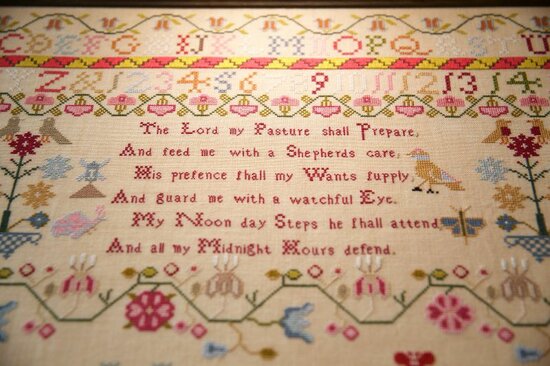 C D E F G I J K M N O P Q S T U
Z & 1 2 3 4 5 6 9 12 13 14
The Lord my Pasture shall Prepare,
And feed me with a Shepherds care,
His prefence fhall my Wants fupply,
And guard me with a watchful Eye.
My Noon day Steps he fhall attend
And all my Midnight Hours defend.